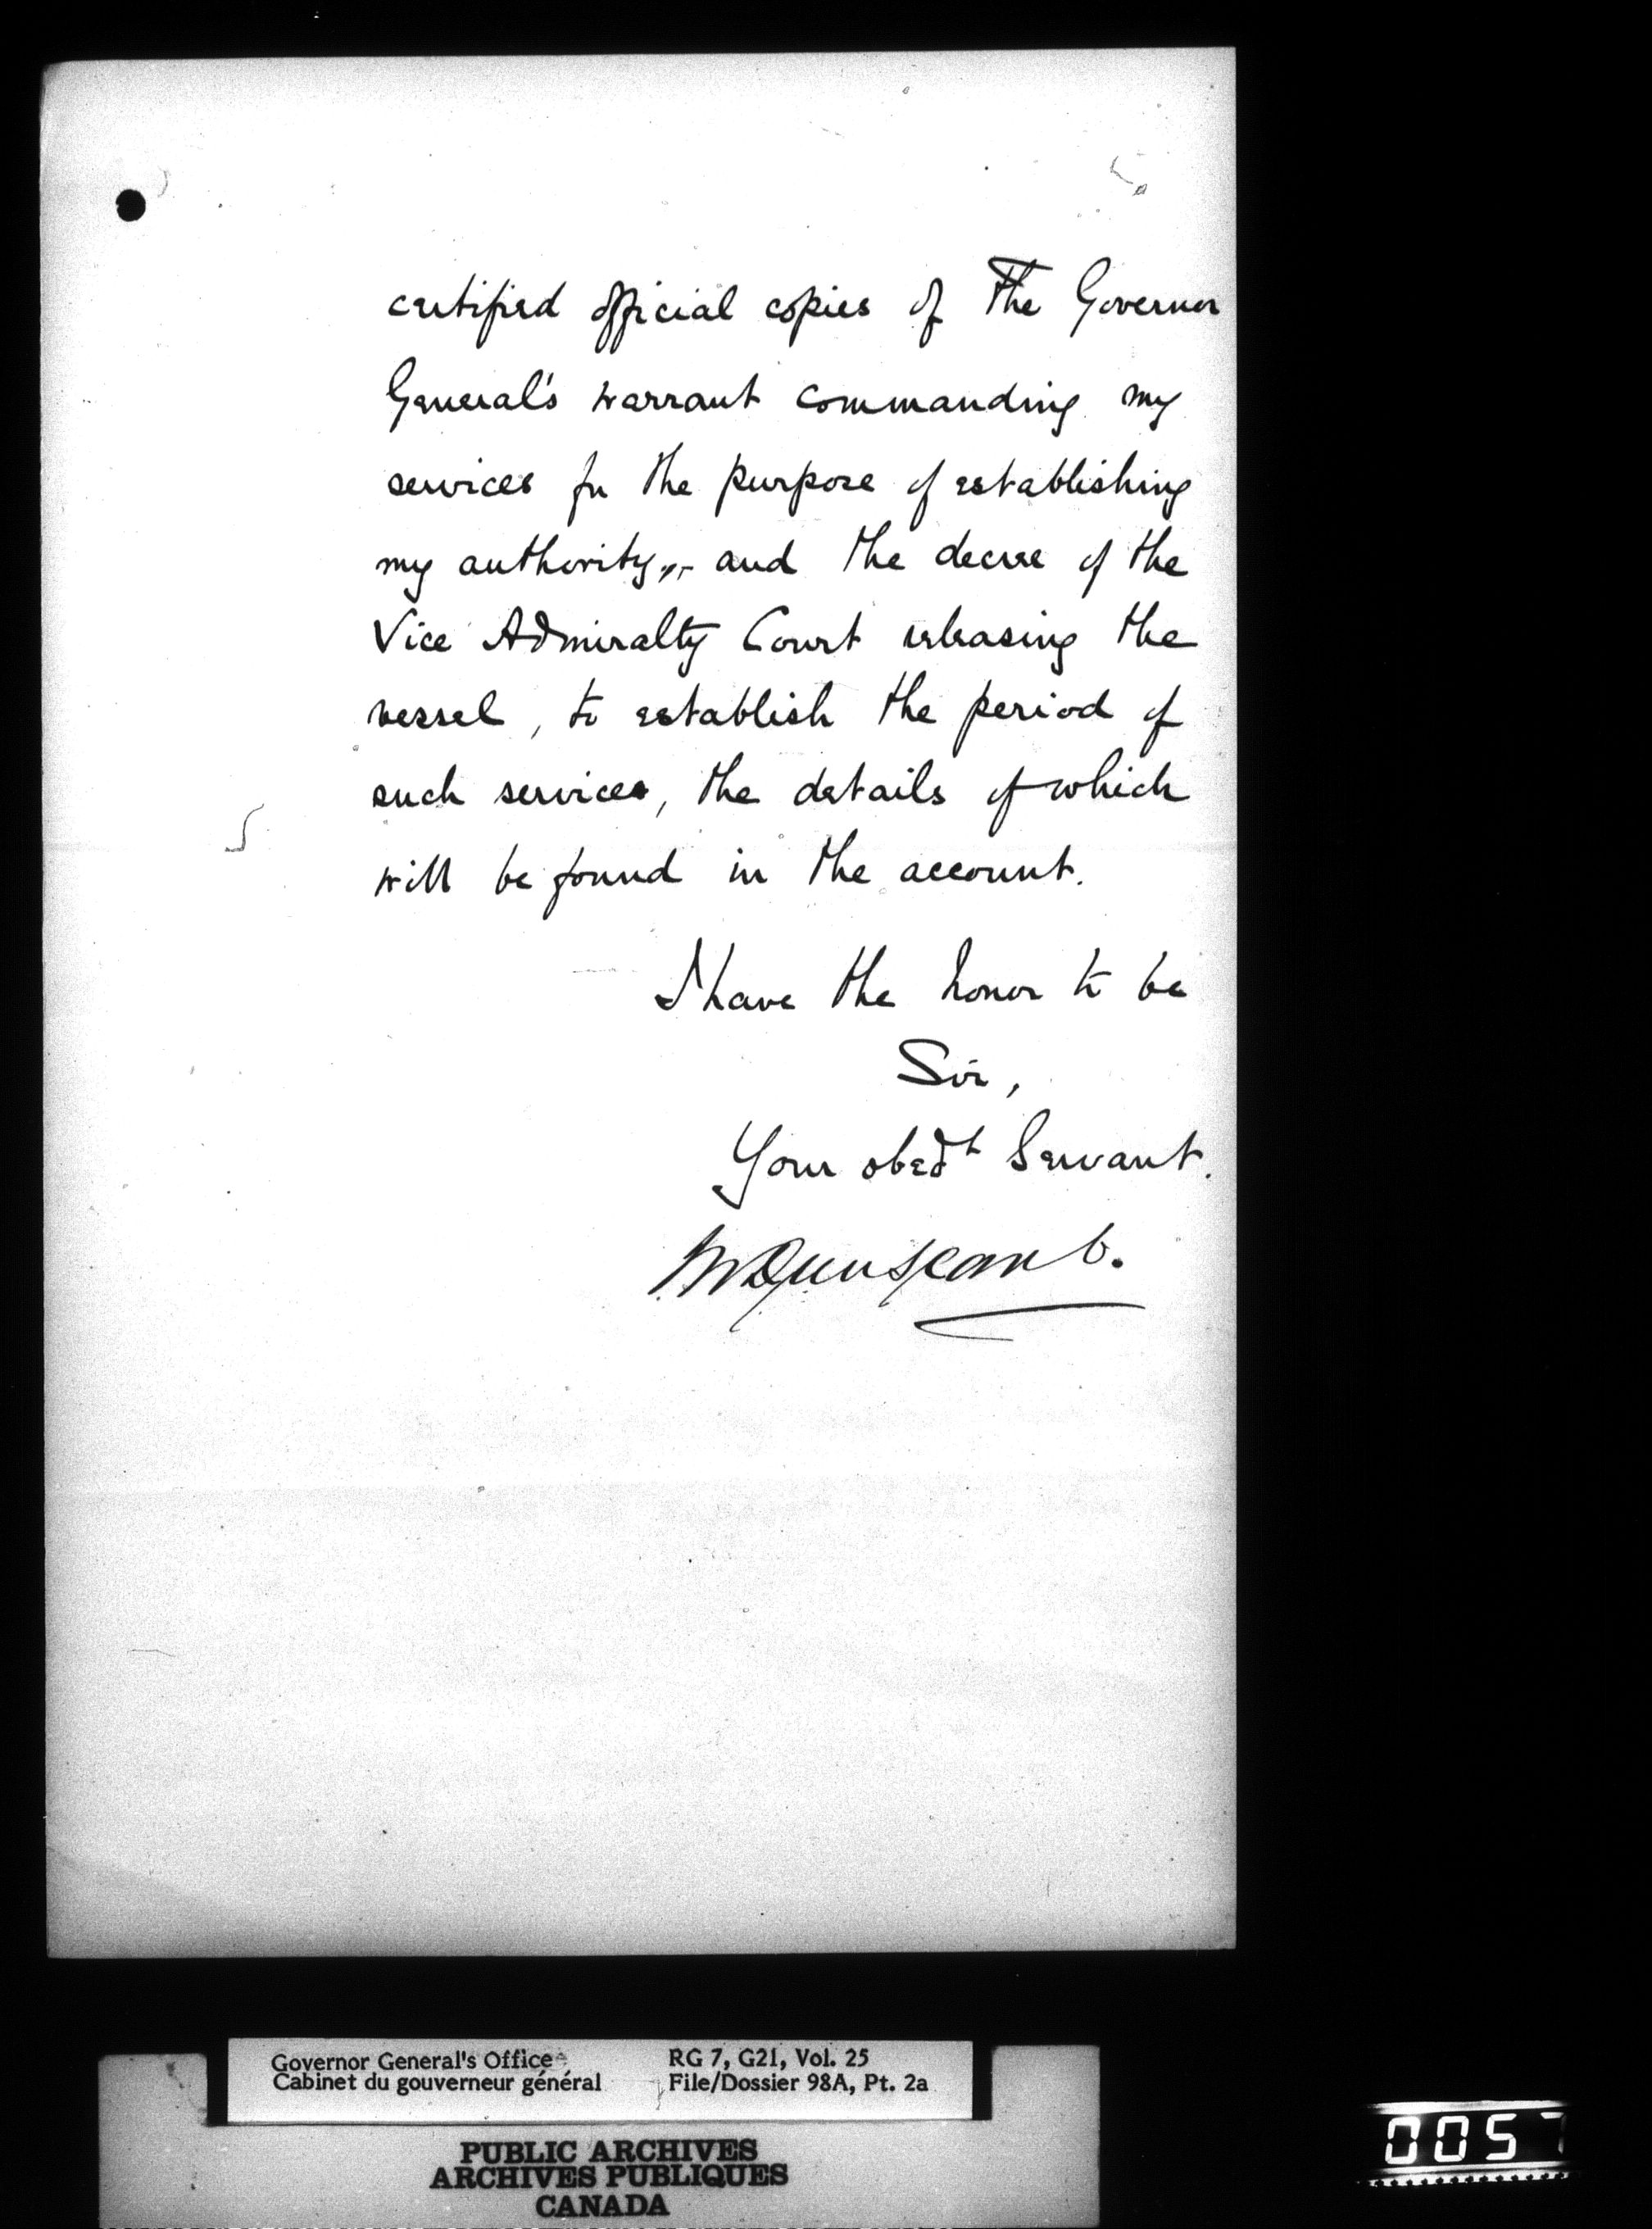 certified official copies of The Governor
General's warrant commanding my
services for the purpose of establishing
my authority,- and the decree of the
Vice Admiralty Court releasing the
vessel, to establish the period of
such services, the details of which
will be found in the account.
I have the honor to be
Sir,
Your obedt Servant.
Dunscomb.
Governor General's Office
Cabinet du gouverneur général
RG 7, G21, Vol. 25
File/Dossier 98A, Pt. 2a
PUBLIC ARCHIVES
ARCHIVES PUBLIQUES
CANADA
0057